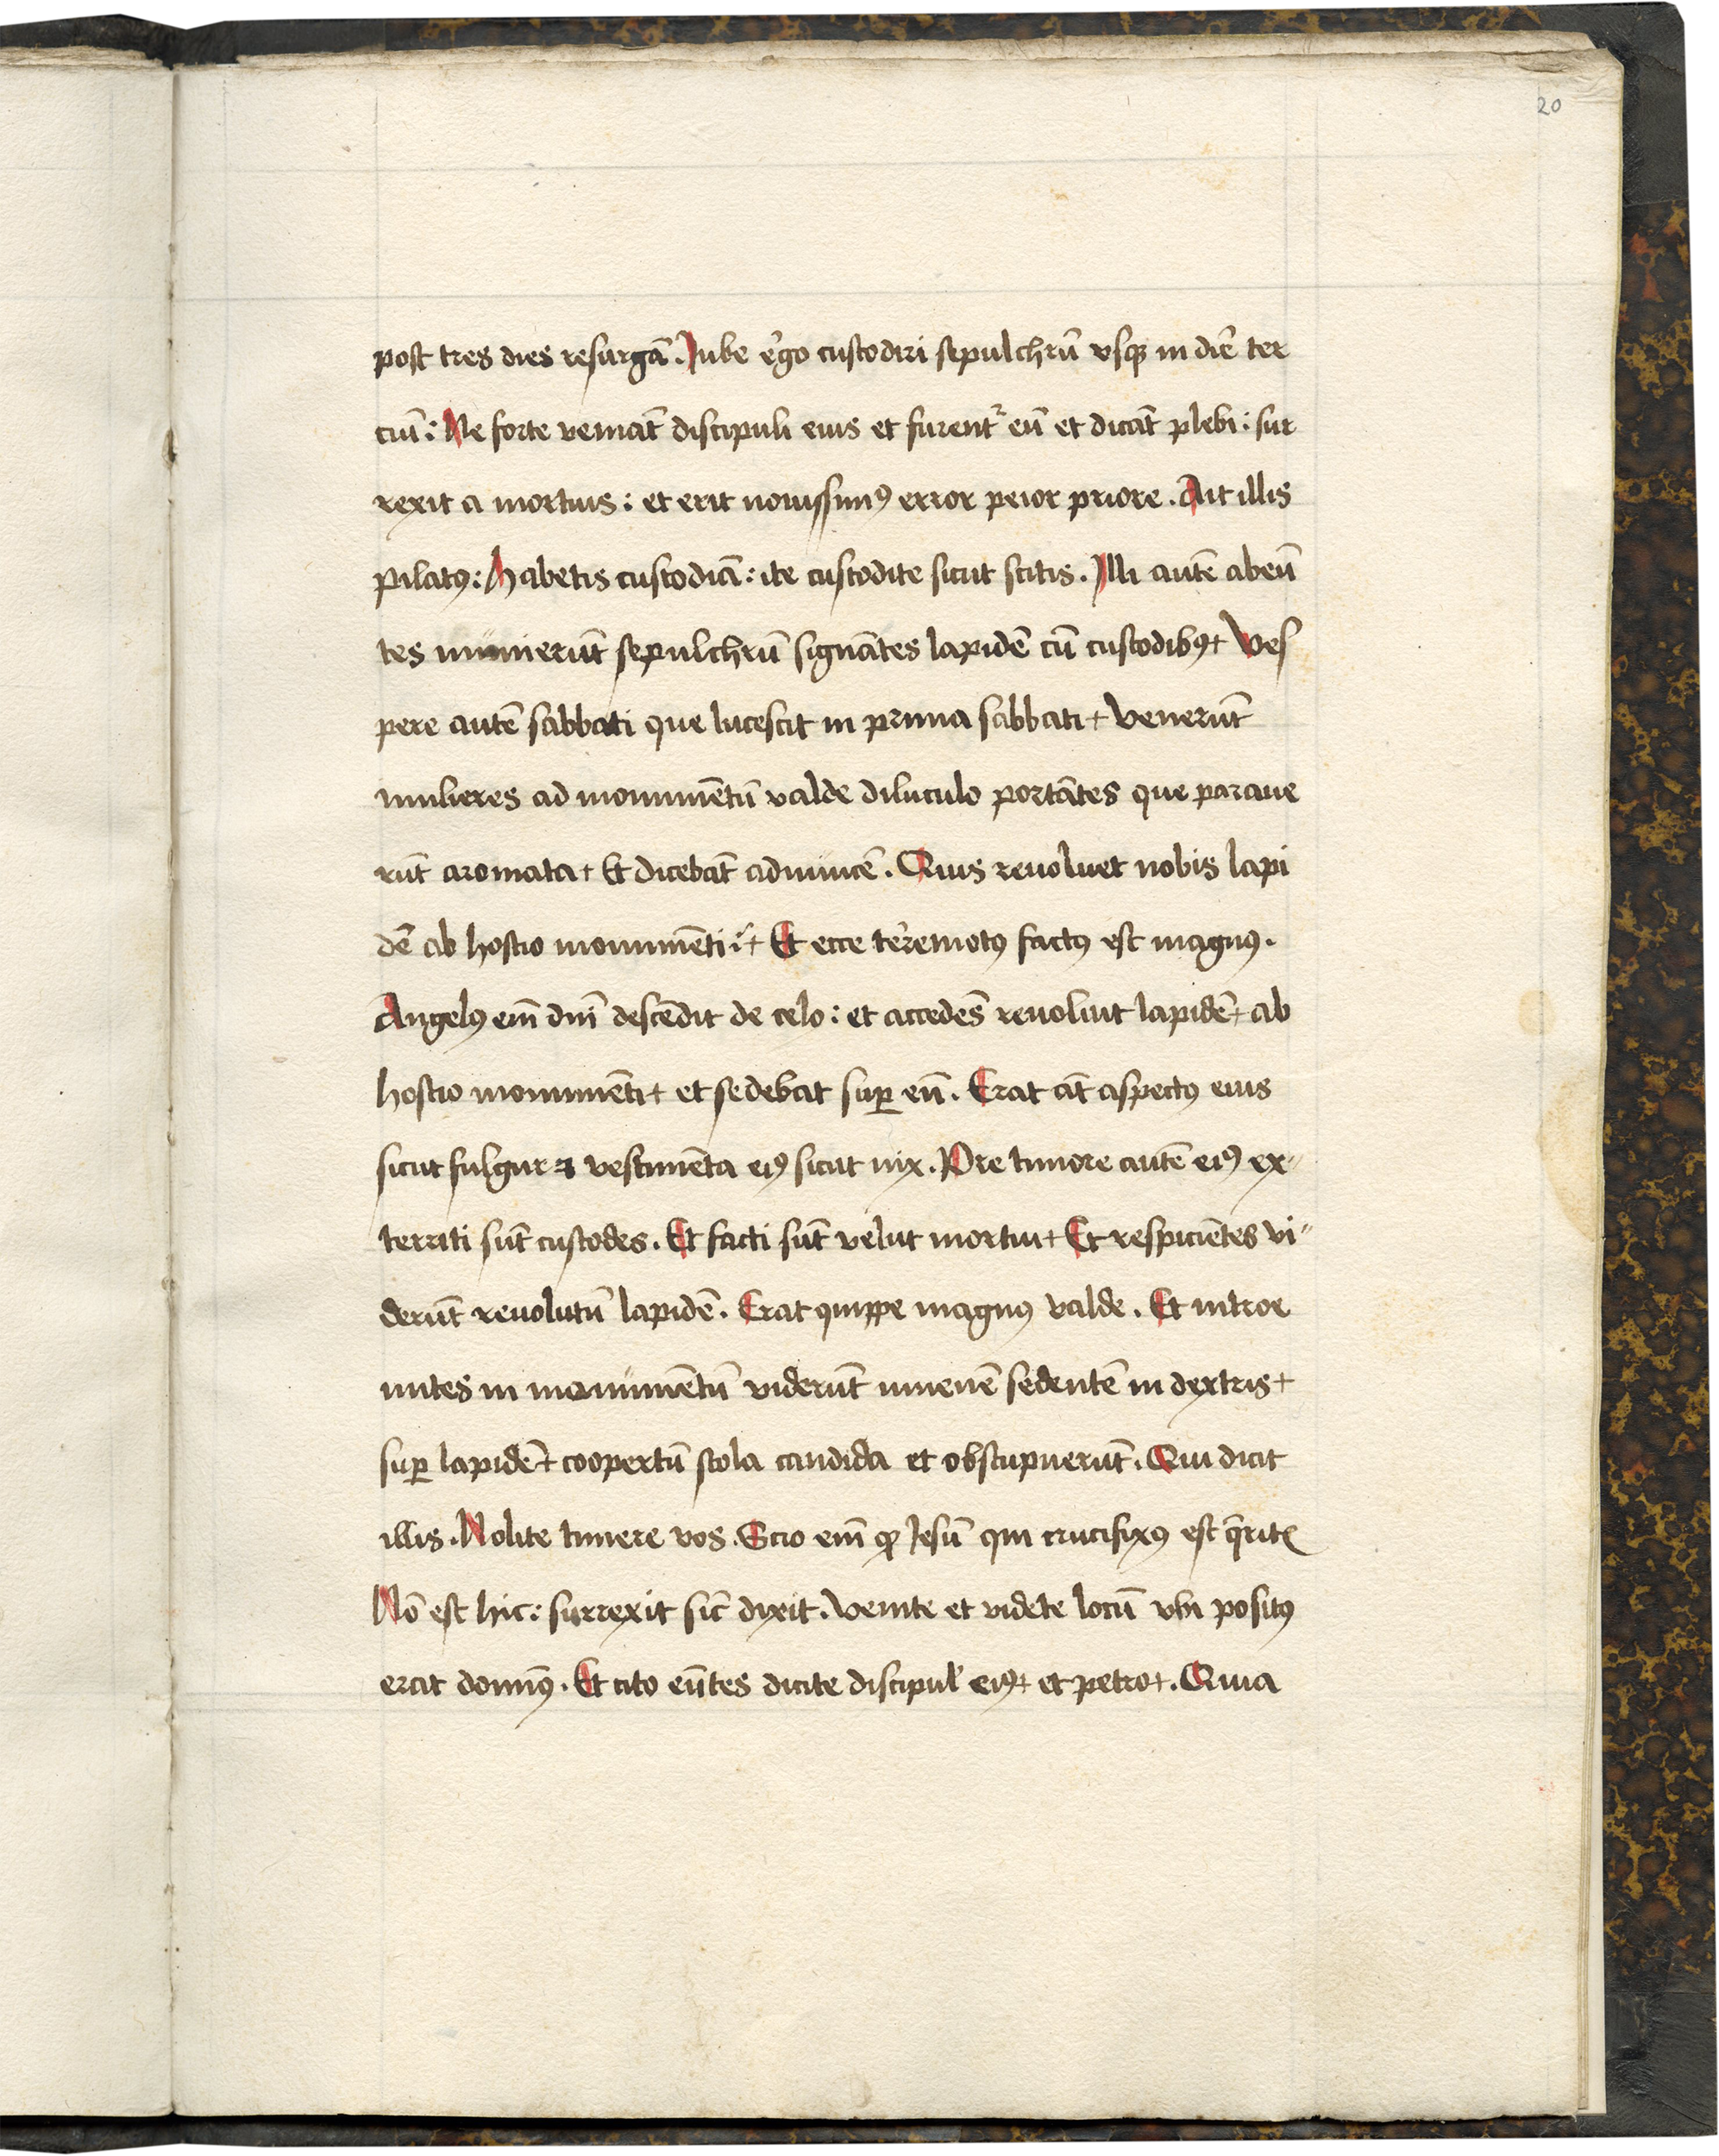 20
post tres dies resurgā. Iube e͛go custodiri sepulchrū vsqꝫ in diē ter
ciū: Ne forte veniāt discipuli eius et furent᷑ eū et dicāt plebi: sur
rexit a mortuis: et erit nouissimꝰ error peior priore. Ait illis
Pilatꝰ: Habetis custodiā: ite custodite sicut scitis. Illi autē abeū
tes munierūt sepulchrū signātes lapidē cū custodibꝰ+ Ves
pere autē sabbati que lucescit in prima sabbati+ Venerūt
mulieres ad monumētū valde diluculo portātes que paraue
rūt aromata+ Et dicebāt adinuicē. Quis reuoluet nobis lapi
dē ab hostio monumēti?+ Et ecce te͛remotꝰ factꝰ est magnꝰ.
Angelꝰ em̄ dn̄i descēdit de celo: et accedēs reuoluit lapidē+ ab
hostio monumēti+ et sedebat suꝑ eū. Erat āt aspectꝰ eius
sicut fulgur ⁊ vestimēta eiꝰ sicut nix. Pre timore autē eiꝰ ex〃
territi sūt custodes. Et facti sūt velut mortui+ Et respiciētes vi〃
derūt reuolutū lapidē. Erat quippe magnꝰ valde. Et introe
untes in monumētū viderūt iuuenē sedentē in dextris+
suꝑ lapidē+ coopertū stola candida et obstupuerūt. Qui dicit
illis. Nolite timere vos. Scio em̄ ꝙ Iesū qui crucifixꝰ est q̄ritꝭ
Nō est hic: surrexit sic̄ dixit. Venite et videte locū vbi positꝰ
erat domīꝰ. Et cito eūtes dicite discipul' eiꝰ+ et petro+. Quia